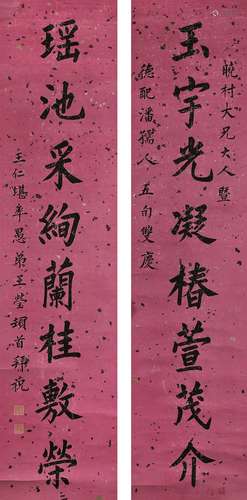 晚村大兄大人暨
德配潘孺人五旬雙慶
玉宇光凝椿萱茂介
瑶池采絢蘭桂敷榮
王仁堪率愚弟王瑩頓首拜祝